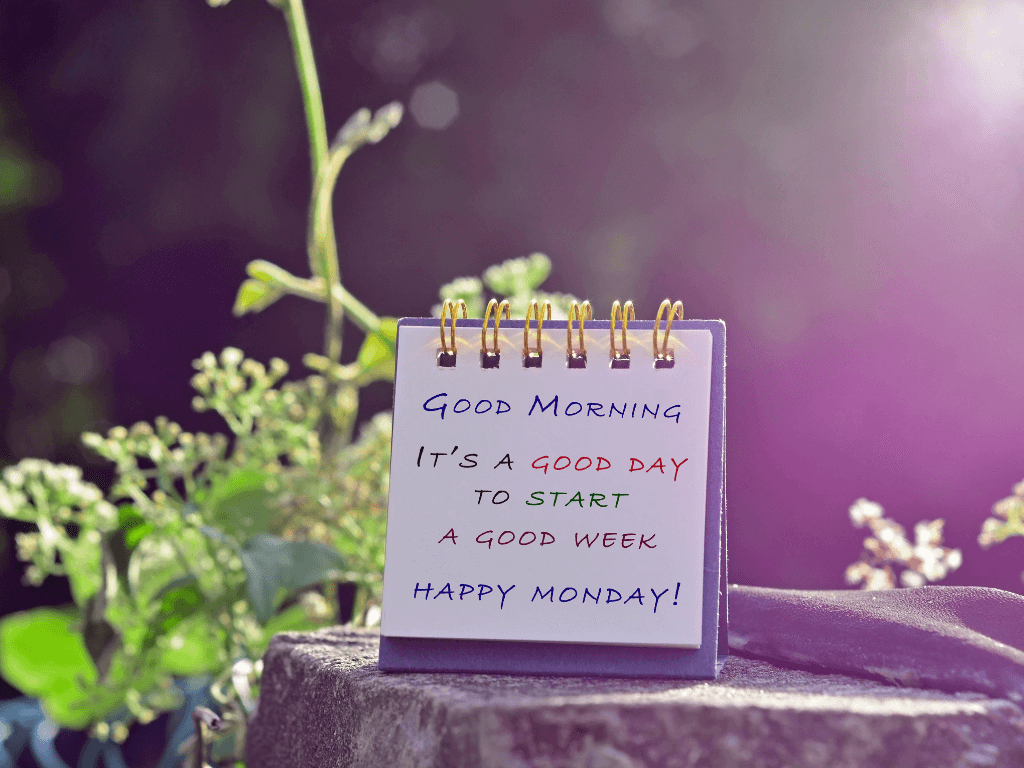 Good Morning
It's a good day
to start
a good week
Happy Monday!